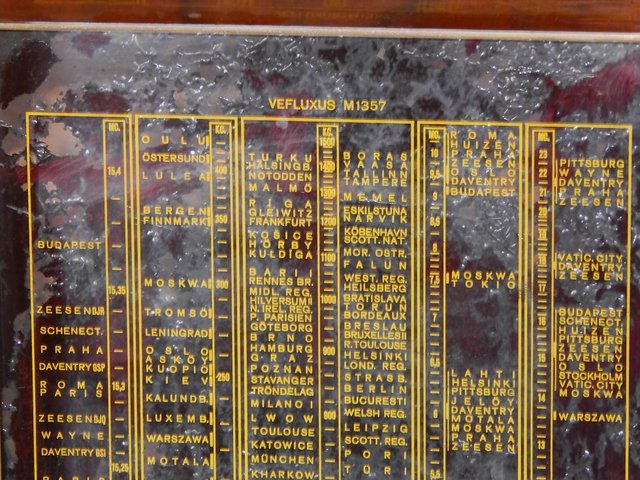 VEFLUXUS M1357
MC.
15,4
BUDAPEST
15,35
ZEESEN DJR
SCHENECT.
PRAHA
DAVENTRY GSP
ROMA
15,3
PARIS
ZEESEN DJQ
WAYNE
DAVENTRY GSI
15,25
KC.
OULU
ÖSTERSUND
400
LULEA
BERGEN
350
FINNMARK
MOSKWA
300
TROMSÖ
LENINGRAD
OSLO
ASKOV
KUOPIO
KIEV
250
KALUNDB.
LUXEMB.
WARSZAWA
MOTALA
KC.
1500
TURKU
1400
HÄLSINGB.
NOTODDEN
MALMÖ
1300
RIGA
GLEIWITZ
FRANKFURT
1200
KOSICE
HÖRBY
KULDIGA
1100
BARI I
RENNES BR.
MIDL. REG.
HILVERSUM II
1000
N. IREL. REG.
P. PARISIEN
GÖTEBORG
BRNO
HAMBURG
900
GRAZ
POZNAN
STAVANGER
TRÖNDELAG
MILANO I
LWOW
800
TOULOUSE
KATOWICE
MÜNCHEN
KHARKOW
BORAS
VAASA
TALLINN
TAMPERE
MEMEL
ESKILSTUNA
NARVIK
KÖBENHAVN
SCOTT. NAT.
MOR. OSTR.
FALUN
WEST. REG.
HEILSBERG
BRATISLAVA
TORUN
BORDEAUX
BRESLAU
BRUXELLES II
R. TOULOUSE
HELSINKI
LOND. REG.
STRASB.
BERLIN
BUCURESTI
WELSH REG.
LEIPZIG
SCOTT. REG.
PORI
TÜRI
MC.
ROMA
HUIZEN
10
PRAHA
ZEESEN
9,5
OSLO
DAVENTRY
9
BUDAPEST
8,5
8
7,5
MOSKWA
TOKIO
7
6,5
LAHTI
HELSINKI
PITTSBURG
JELÖY
6
DAVENTRY
MOTALA
MOSKWA
PRAHA
ZEESEN
5,5
MC.
23
PITTSBURG
22
WAYNE
DAVENTRY
21
PRAHA
ZEESEN
20
19
VATIC. CITY
18
DAVENTRY
ZEESEN
17
BUDAPEST
16
SCHENECT
HUIZEN
PITTSBURG
ZEESEN
15
DAVENTRY
OSLO
STOCKHOLM
VATIC. CITY
14
MOSKWA
WARSZAWA
13